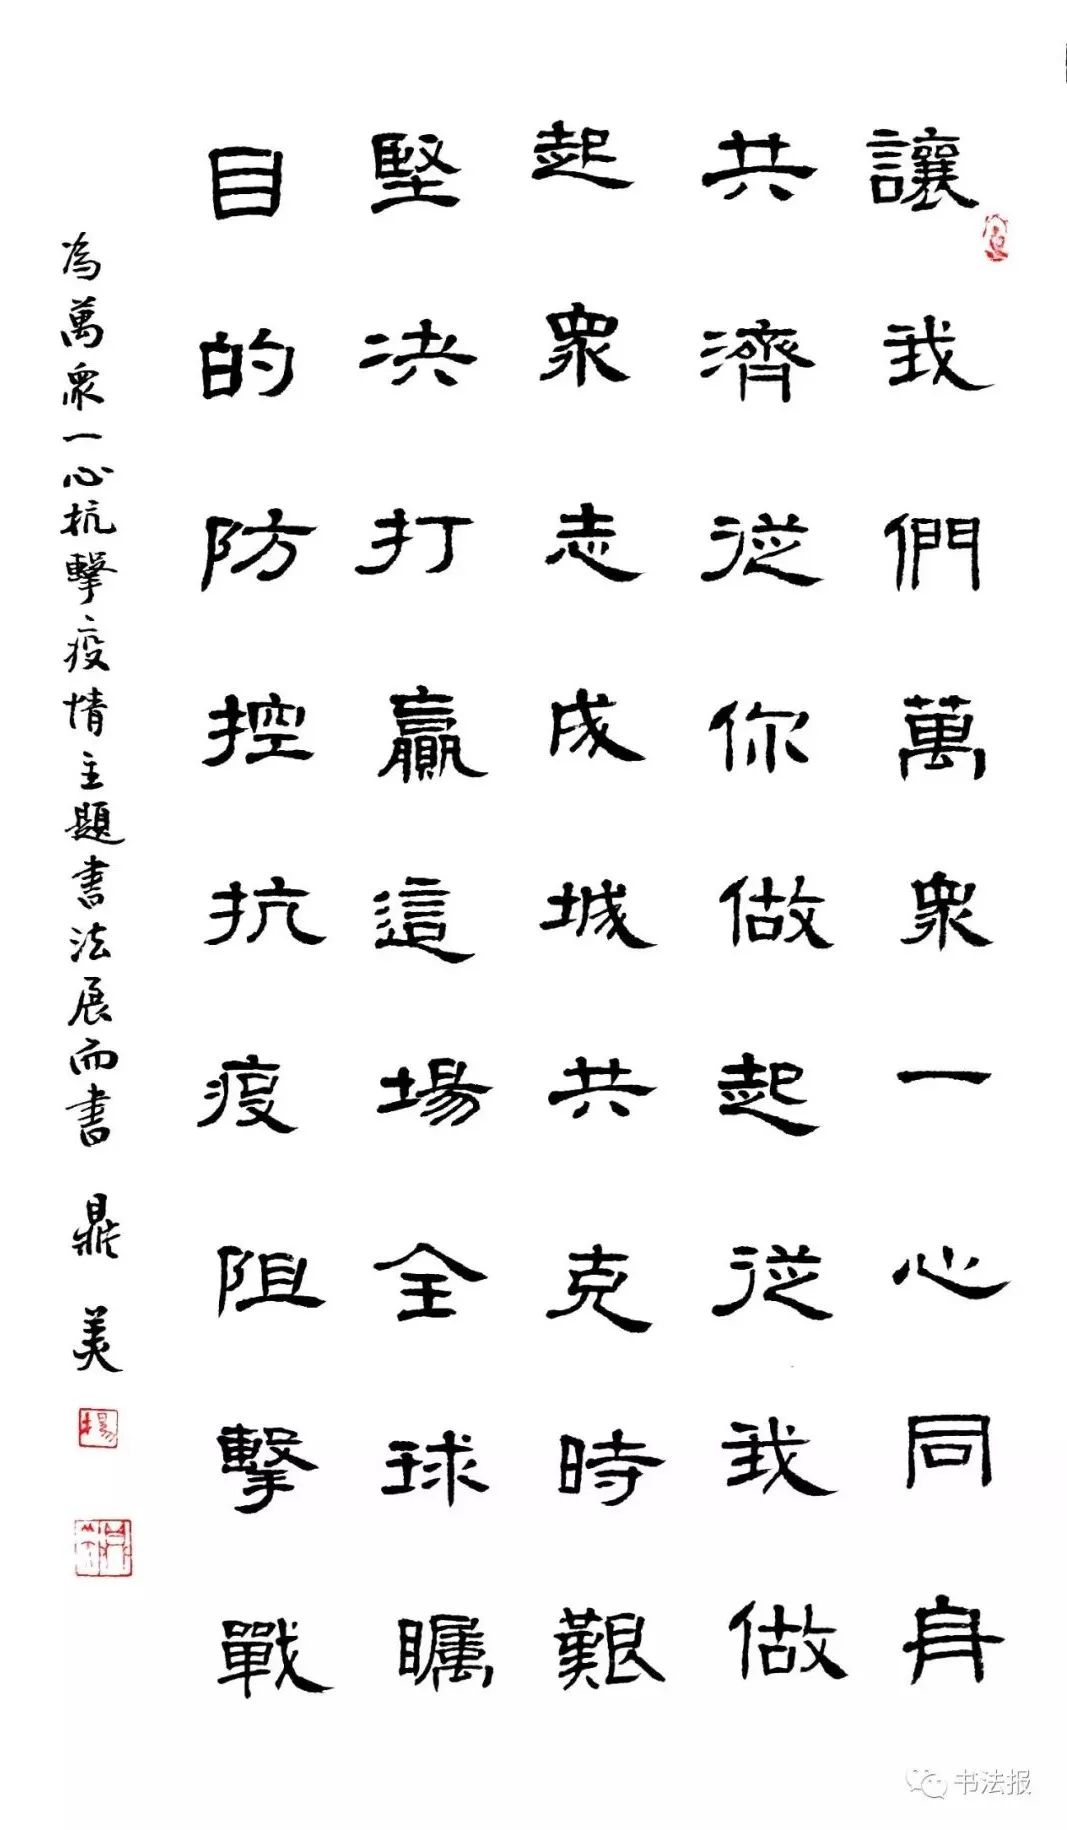 讓我們萬衆一心同舟
共濟從你做起從我做
起衆志成城共克時艱
堅决打贏這場全球矚
目的防控抗疫阻擊戰
為萬衆一心抗擊疫情主題書法展而書 鼎美
楊
书法报